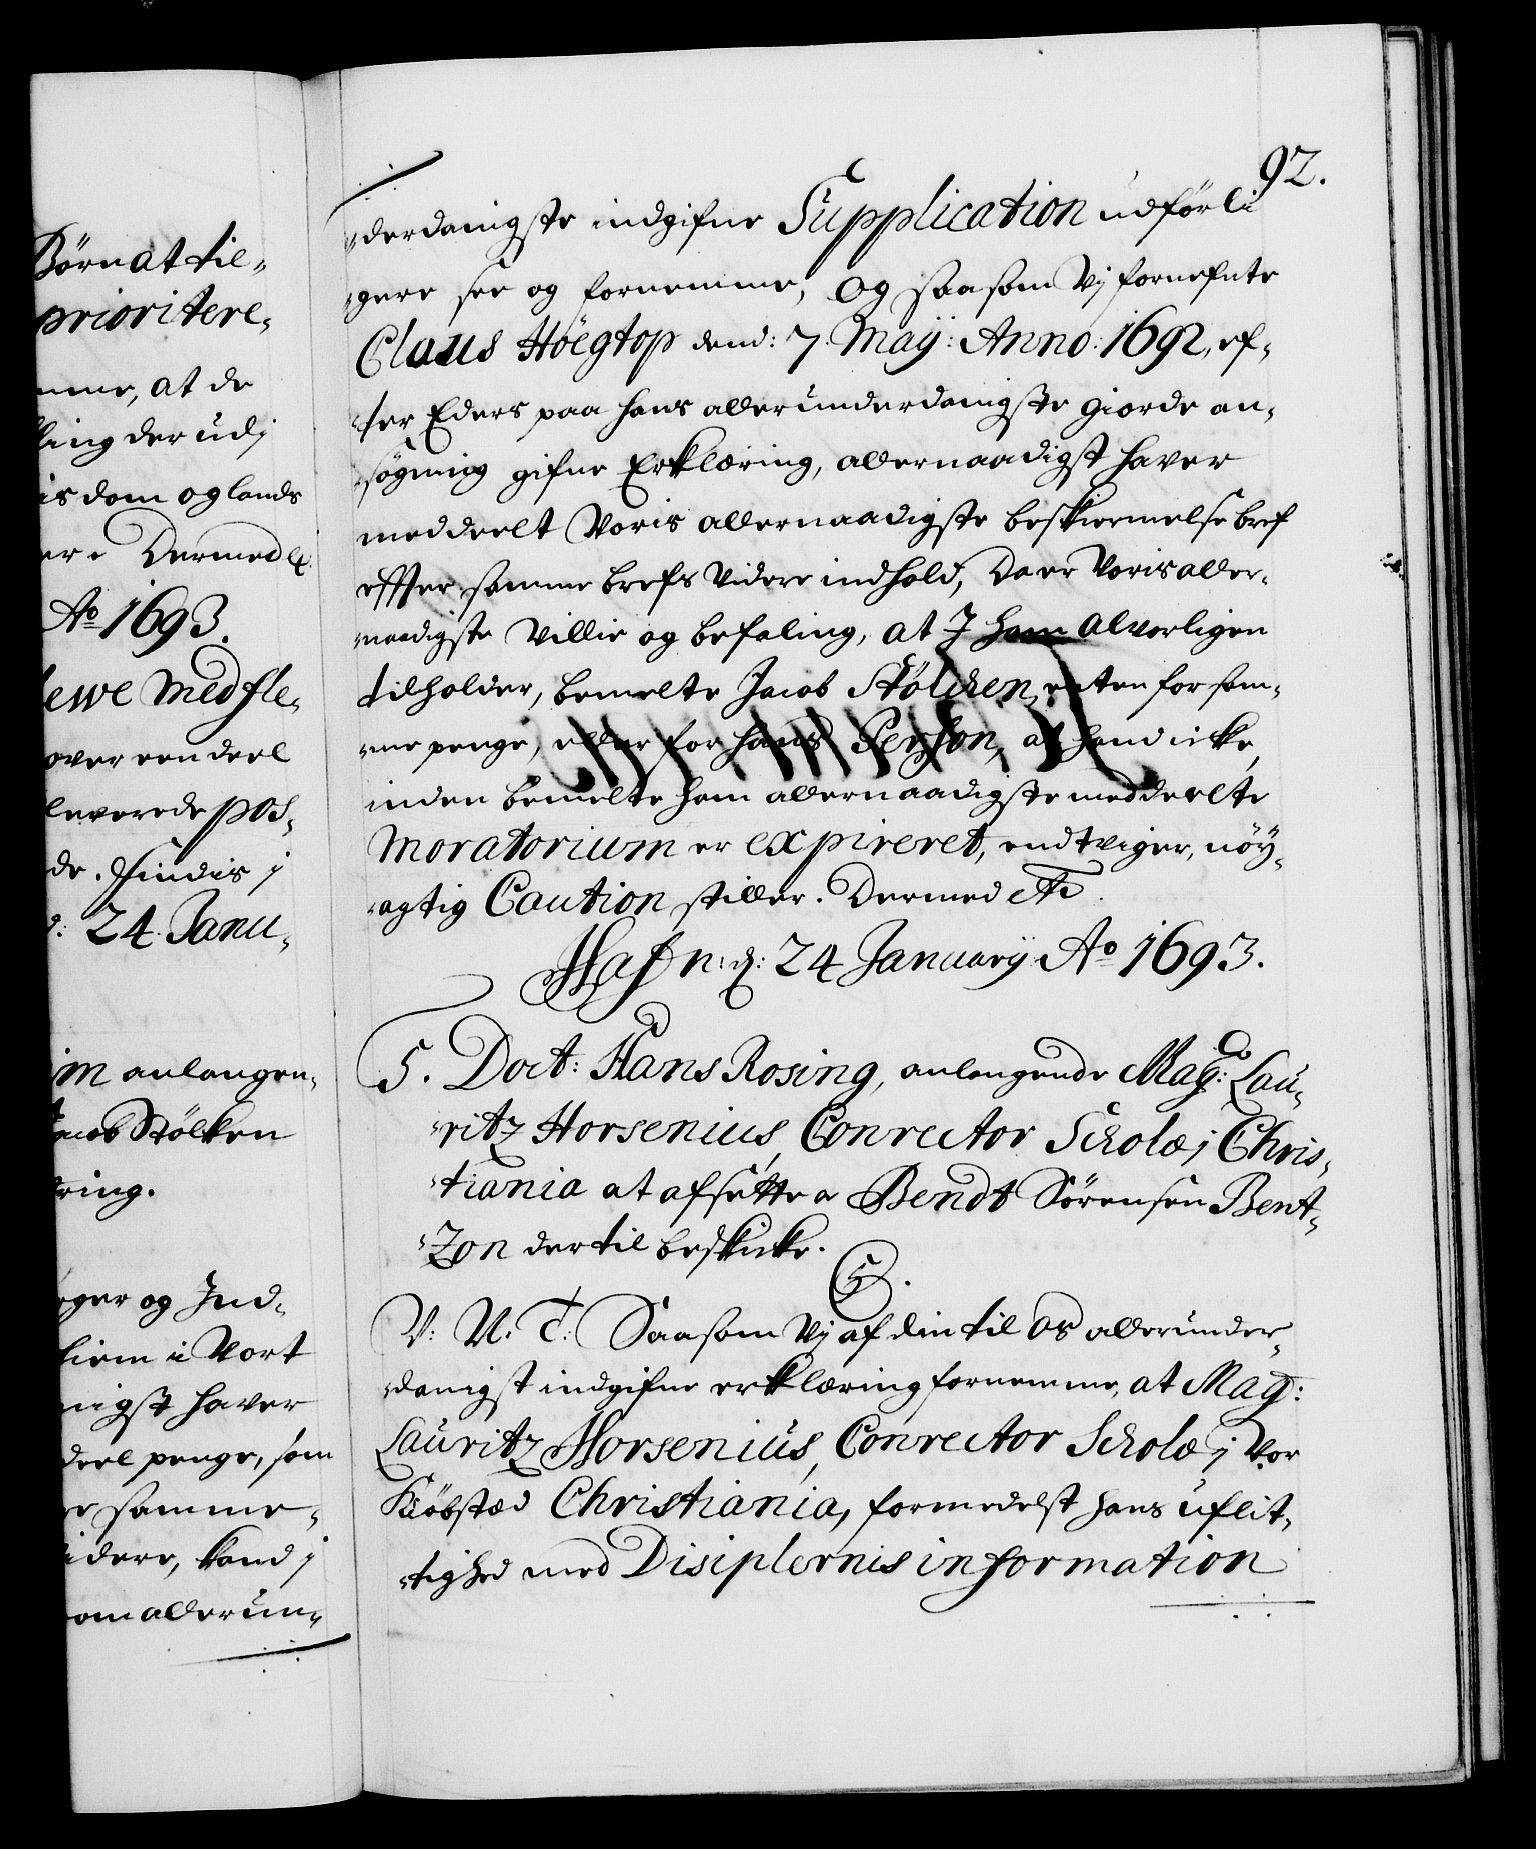 Børn at til-
prioritere-
mme, at de
ling der udj
is dom og lands
ere Dermed &
Ao 1693.
ewe med fle-
over een deel
leverede pos-
de. Findis j
d: 24 Janu-
im anlangen-
Jacob Stølken
ring.
ger og Ind-
hiem i Vort
nigst hafver
deel penge, som
e samme-
idere, kand j
om allerun-
92.
-derdanigste indgifne Supplication udførli
-gere see og fornemme, Og saasom Vj fornefnte
Claus Höegtop dend: 7 Maÿ: Anno: 1692, ef-
-ter Eders paa hans allerunderdanigste giorde an-
-søgning gifne Erklæring, allernaadigst hafver
meddeelt Voris allernaadigste beskiermelse bref
effter samme brefs Videre indhold, Da er Voris aller-
-naadigste Villie og befaling, at J ham alvorligen
tilholder, bemelte Jacob Stölcken, enten for sam-
-me penge, eller for hans Person, at hand icke,
inden bemelte ham allernaadigste meddeelte
Moratorium er expireret, endtviger, nöÿ-
-agtig Caution stiller. Dermed etc.
Hafn: d: 24 Januarÿ Ao 1693.
5. Doct: Hans Rosing, anlangende Mag: Lau-
-ritz Horsenius, Conrector Scholæ j Chris-
-tiania at afsette oc Bendt Sörensen Bent-
-Zon dertil beskicke.
5.
V: U. T: Saasom Vj af din til Os allerunder-
-danigst indgifne erklæring fornemme, at Mag:
Lauritz Horsenius, Conrector Scholæ j Vor
Kiöbstæd Christiania, formedelst hans uflit-
-tighed med Disiplernis information